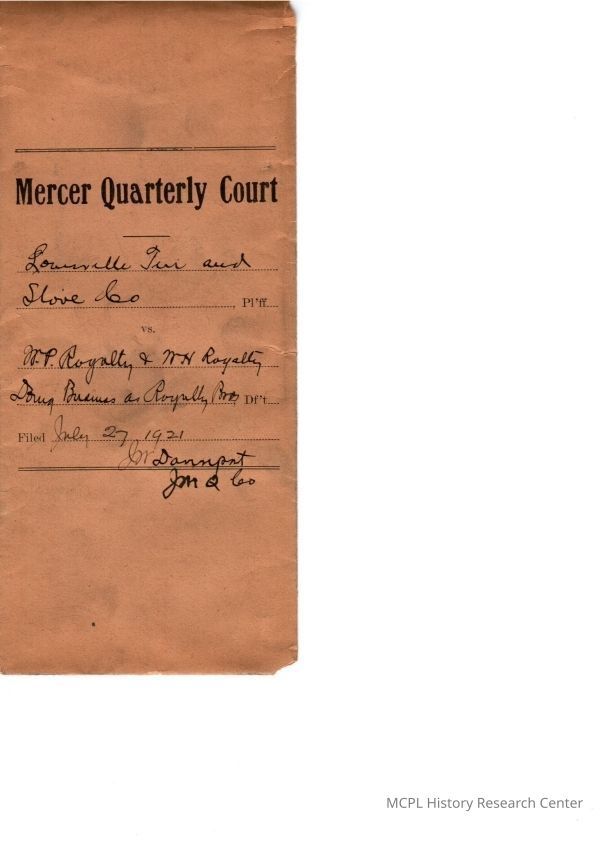 Mercer Quarterly Court
Louisville Tin and
Stove Co Pl'ff.
vs.
W.P. Royalty & WH Royalty
Doing Business as Royalty Bros Df't.
Filed July 27, 1921
JW Davenport
JM Q Co
MCPL History Research Center